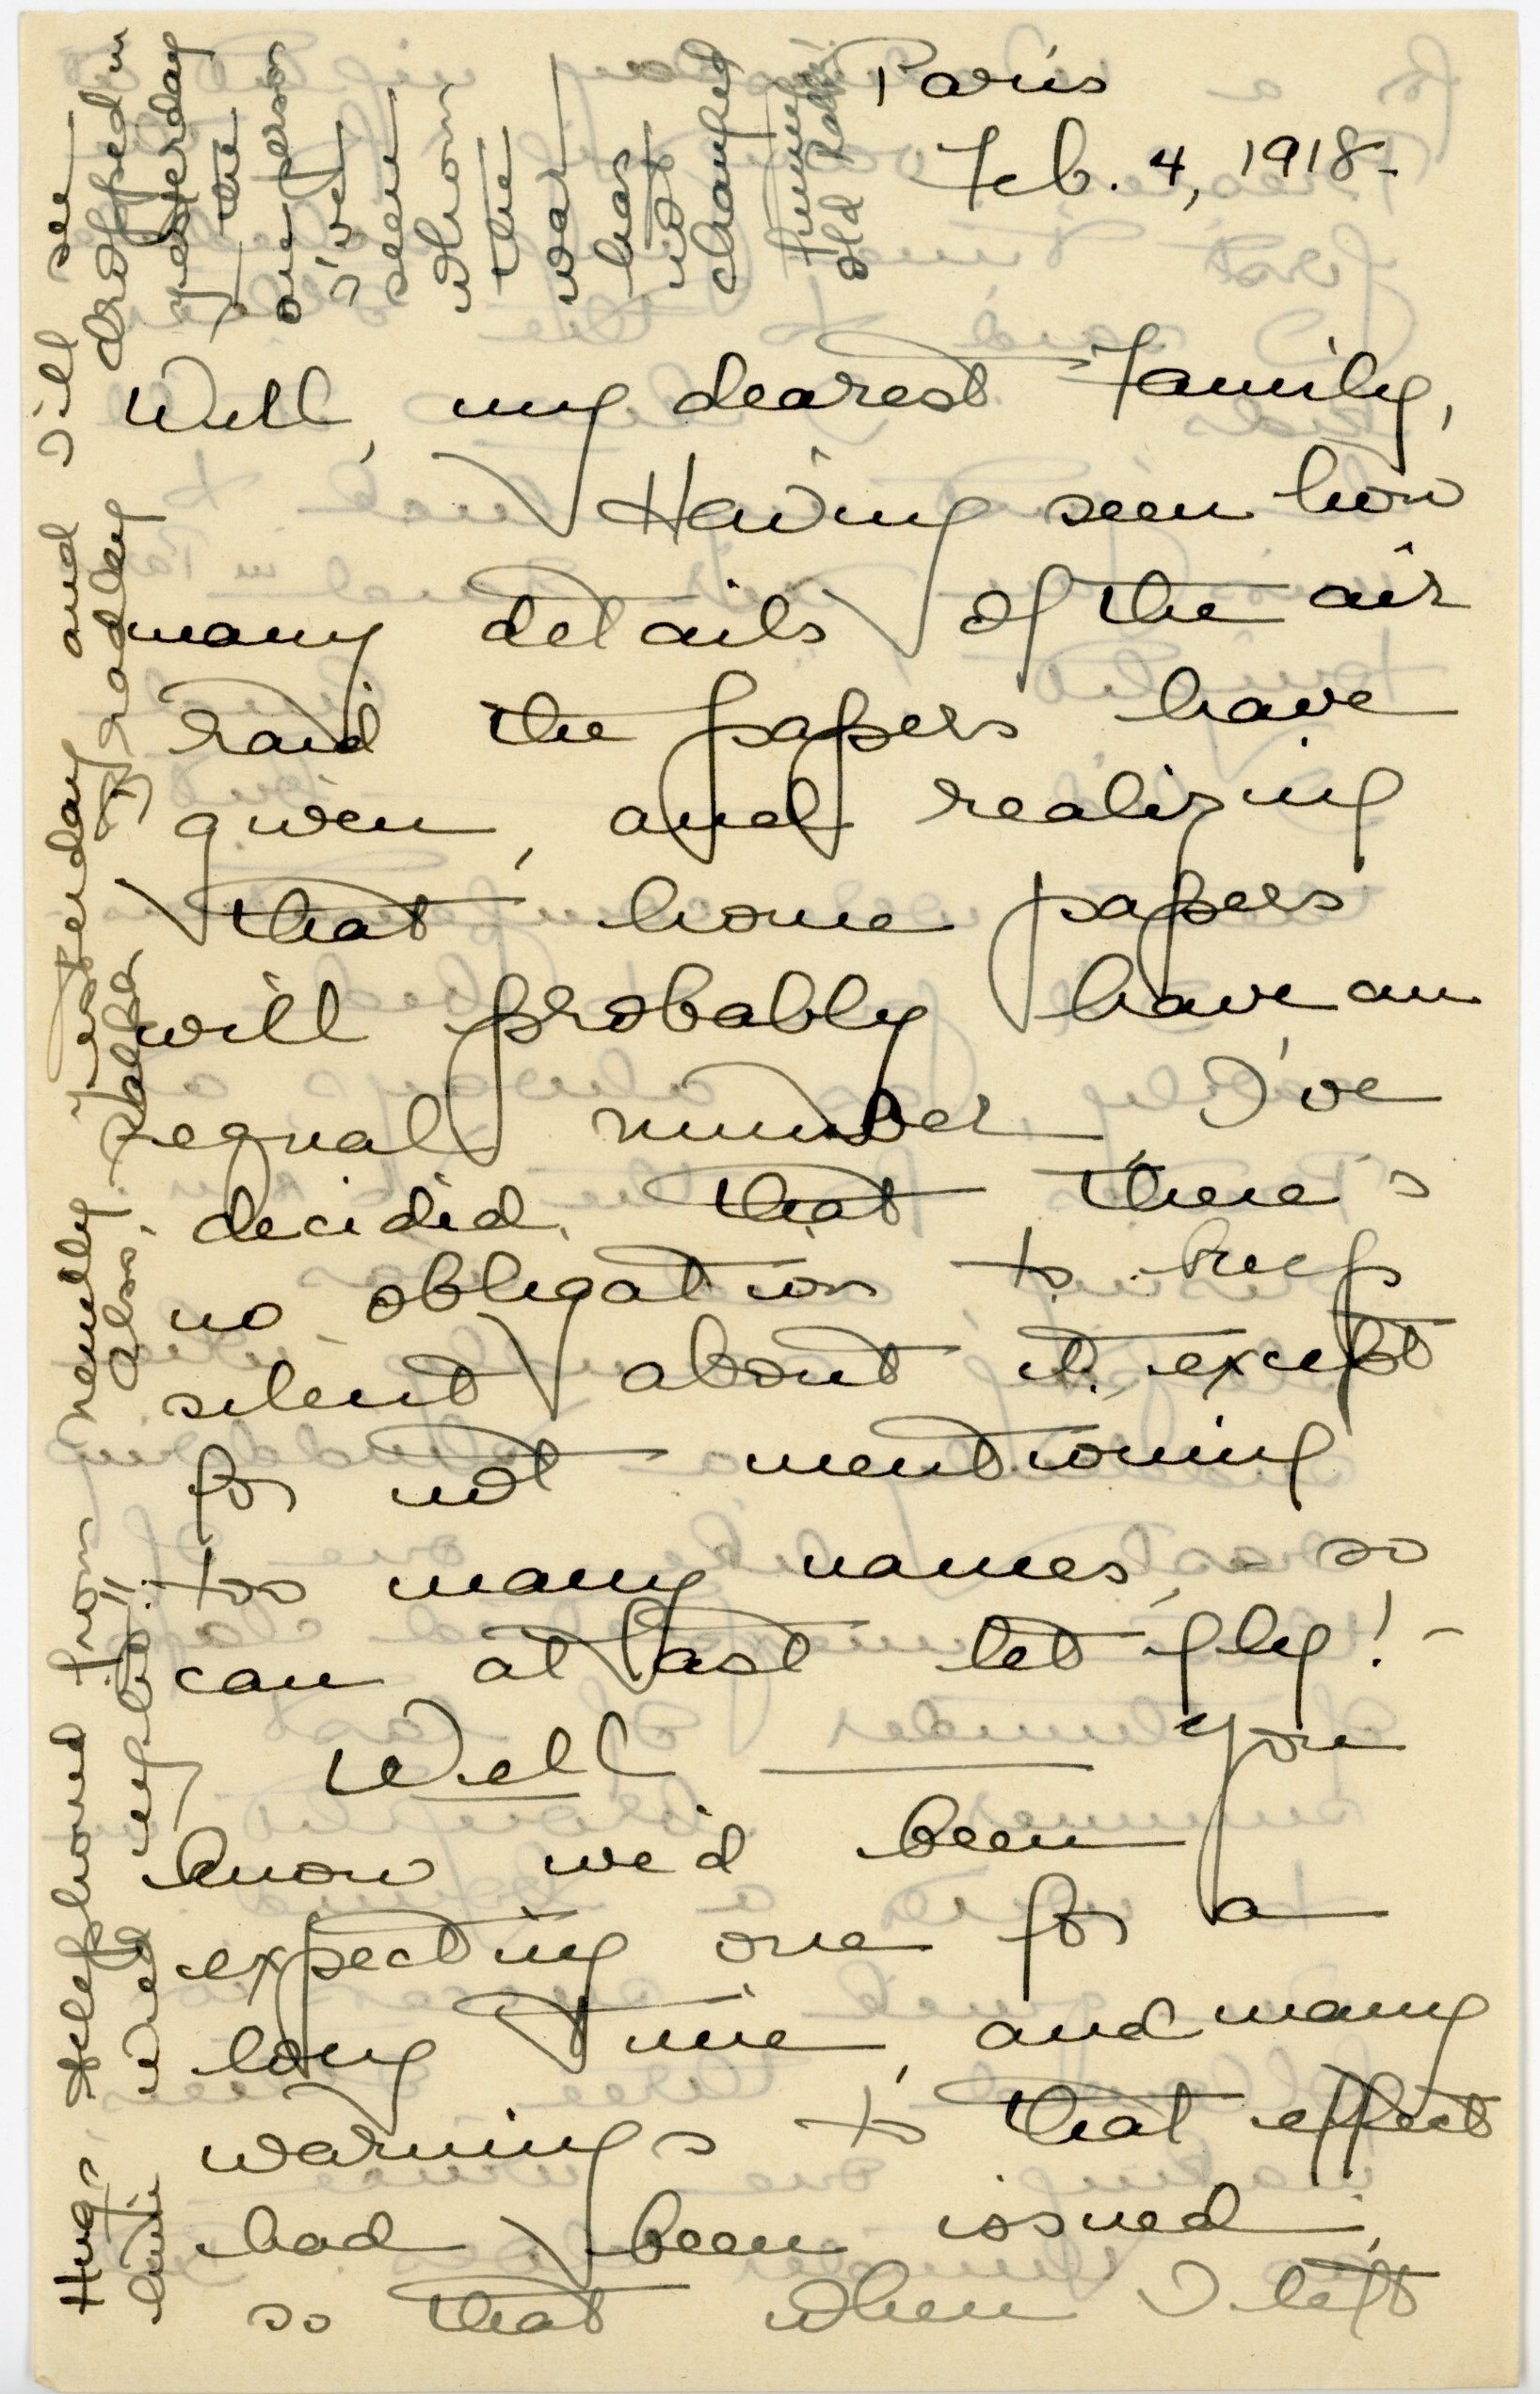 Paris
Feb. 4, 1918-
Well, my dearest Family,
Having seen how
many details of the air
raid the papers have
given, and realizing
that home papers
will probably have an
equal number, I've
decided that there's
no obligation to keep
silent about it, except
for not mentioning
too many names, so
can at last let fly! -
Well — you
know we'd been
expecting one for a
long time, and many
warnings to that effect
had been issued,
so that when I left
Hugs telephoned from Neuilly yesterday and I'll see
him Wed. night!! Also, Ralph Bradley dropped in
yesterday
— the
one person
I've
seen
whom
the
war
has
not
changed
funny
old Ralph